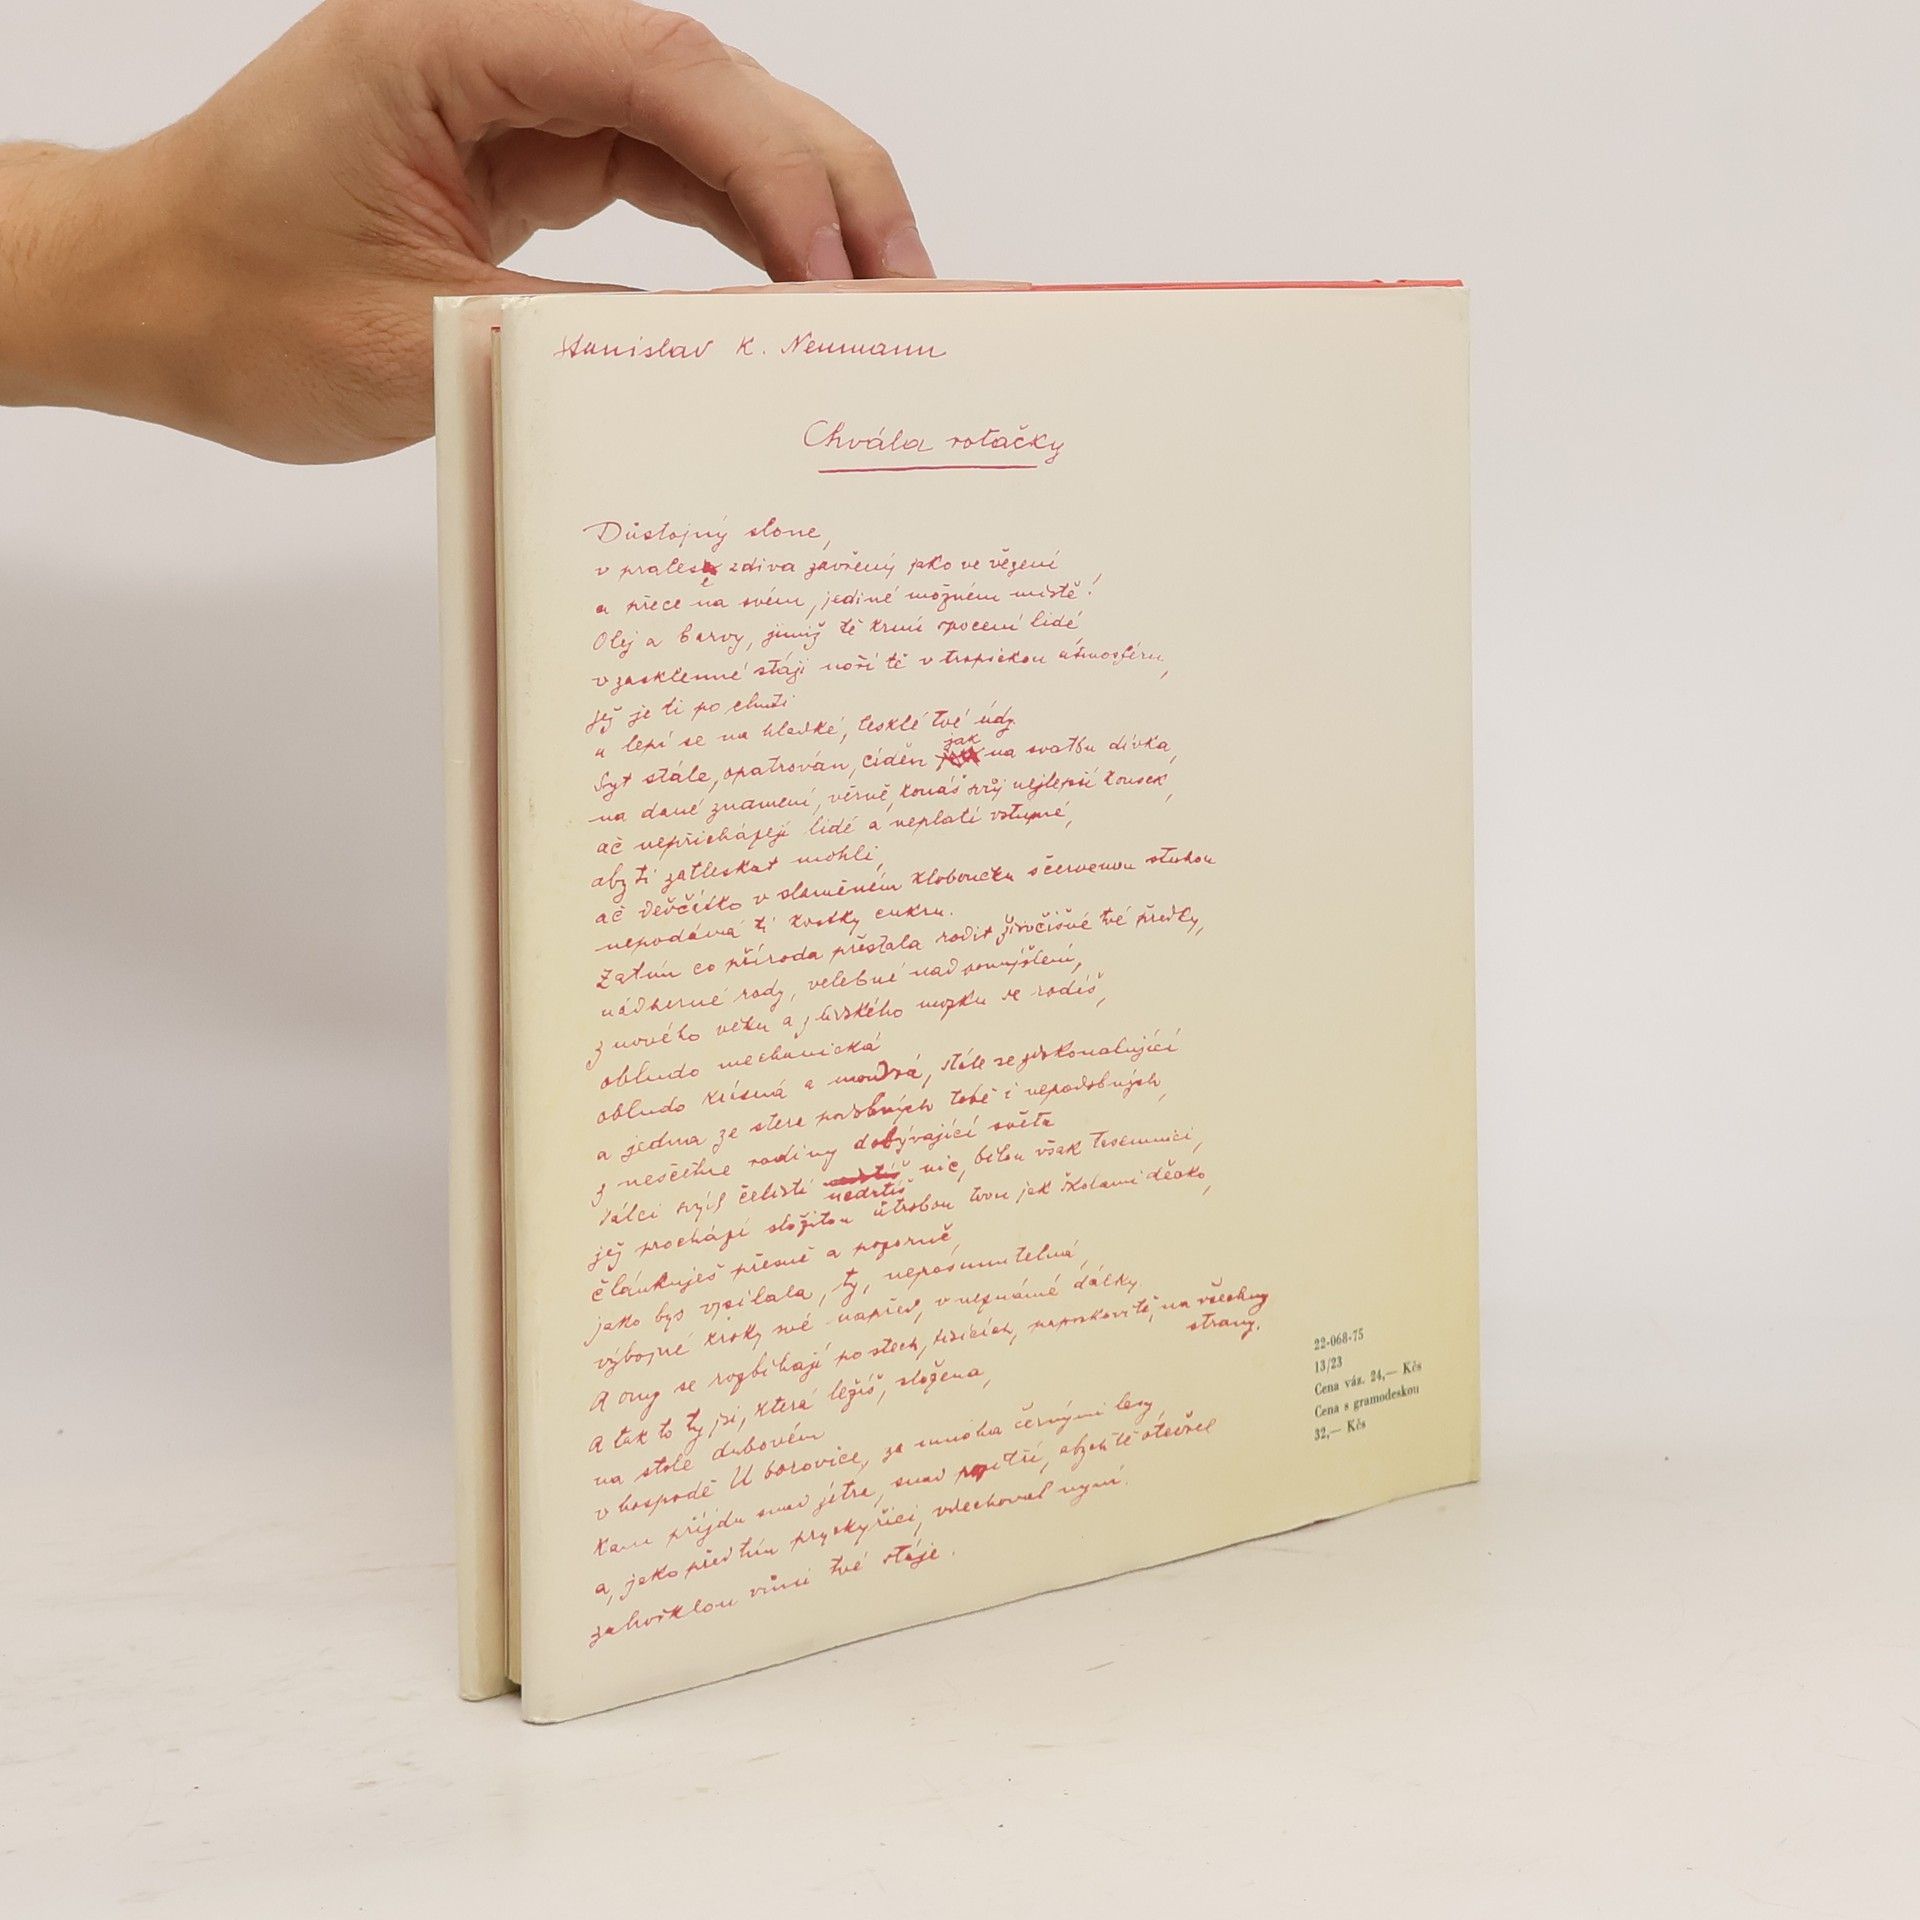 Stanislav K. Neumann
Chvála rotačky
Důstojný slone,
v pralese zdiva zavřený jako ve vězení
a přece na svém, jediné možném místě!
Olej a barvy, jimiž tě krmí zpocení lidé
v zasklenné stáji noří tě v tropickou atmosféru,
jež je ti po chuti
a lepí se na hladké, lesklé tvé údy.
Syt stále, opatrován, cíděn jak na svatbu dívka,
na dané znamení, věrně, konáš svůj nejlepší kousek,
ač nepřicházejí lidé a neplatí vstupné,
aby ti zatleskat mohli,
ač děvčátko v slaměném kloboučku s červenou stuhou
nepodává ti kostky cukru.
Zatím co příroda přestala rodit živočišné tvé předky,
nádherné rody, velebné nad pomyšlení,
z nového věku a z lidského mozku se rodíš,
obludo mechanická
obludo krásná a moudrá, stále se zdokonalující
a jedna ze stera podobných tobě i nepodobných,
z nesčetné rodiny dobývající světa
Válci svých čelistí nedrtíš nic, bílou však tasemnici,
jež prochází složitou útrobou tvou jak školami děcko,
článkuješ přesně a pozorně,
jako bys vysílala, ty, neposunutelná,
výbojné kroky své napřed, v neznámé dálky
A ony se rozbíhají po stech, tisících, paprskovitě, na všechny
strany.
A tak to ty jsi, která ležíš, složena,
na stole dubovém
v hospodě U borovice, za mnoha černými lesy,
kam přijdu snad zítra, snad pozítří, abych tě otevřel
a, jako předtím pryskyřici, vdechoval nyní
zahořklou vůni tvé stáje.
22-068-75
13/23
Cena váz. 24,— Kčs
Cena s gramodeskou
32,— Kčs